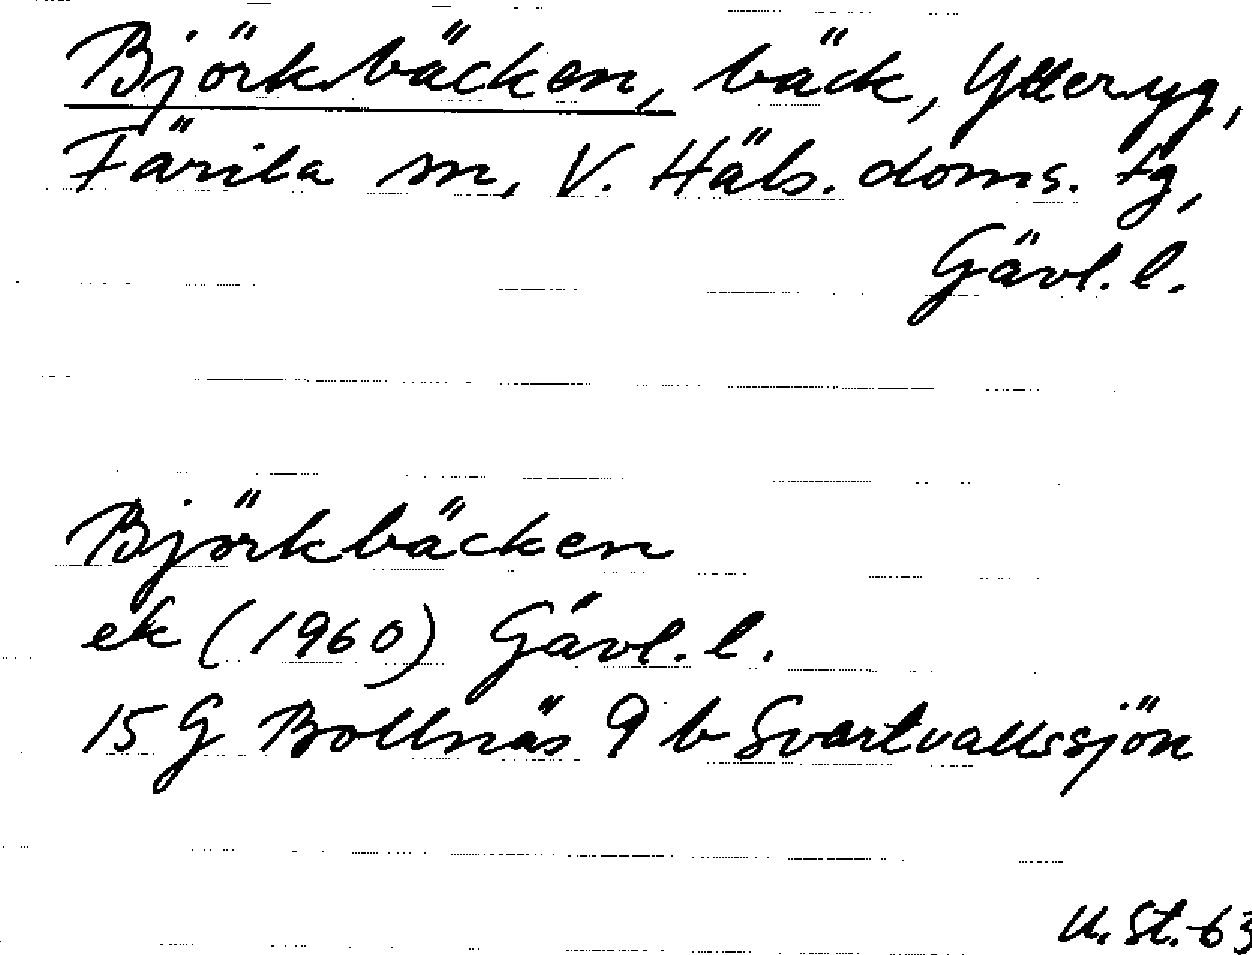 Björkbäcken, bäck, Ytteryg,
Färila sn, V. Häls. doms. tg,
Gävl. l.
Björkbäcken
ek (1960) Gävl. l.
15 G Bollnäs 9 b Svartvallssjön
U. St. -63